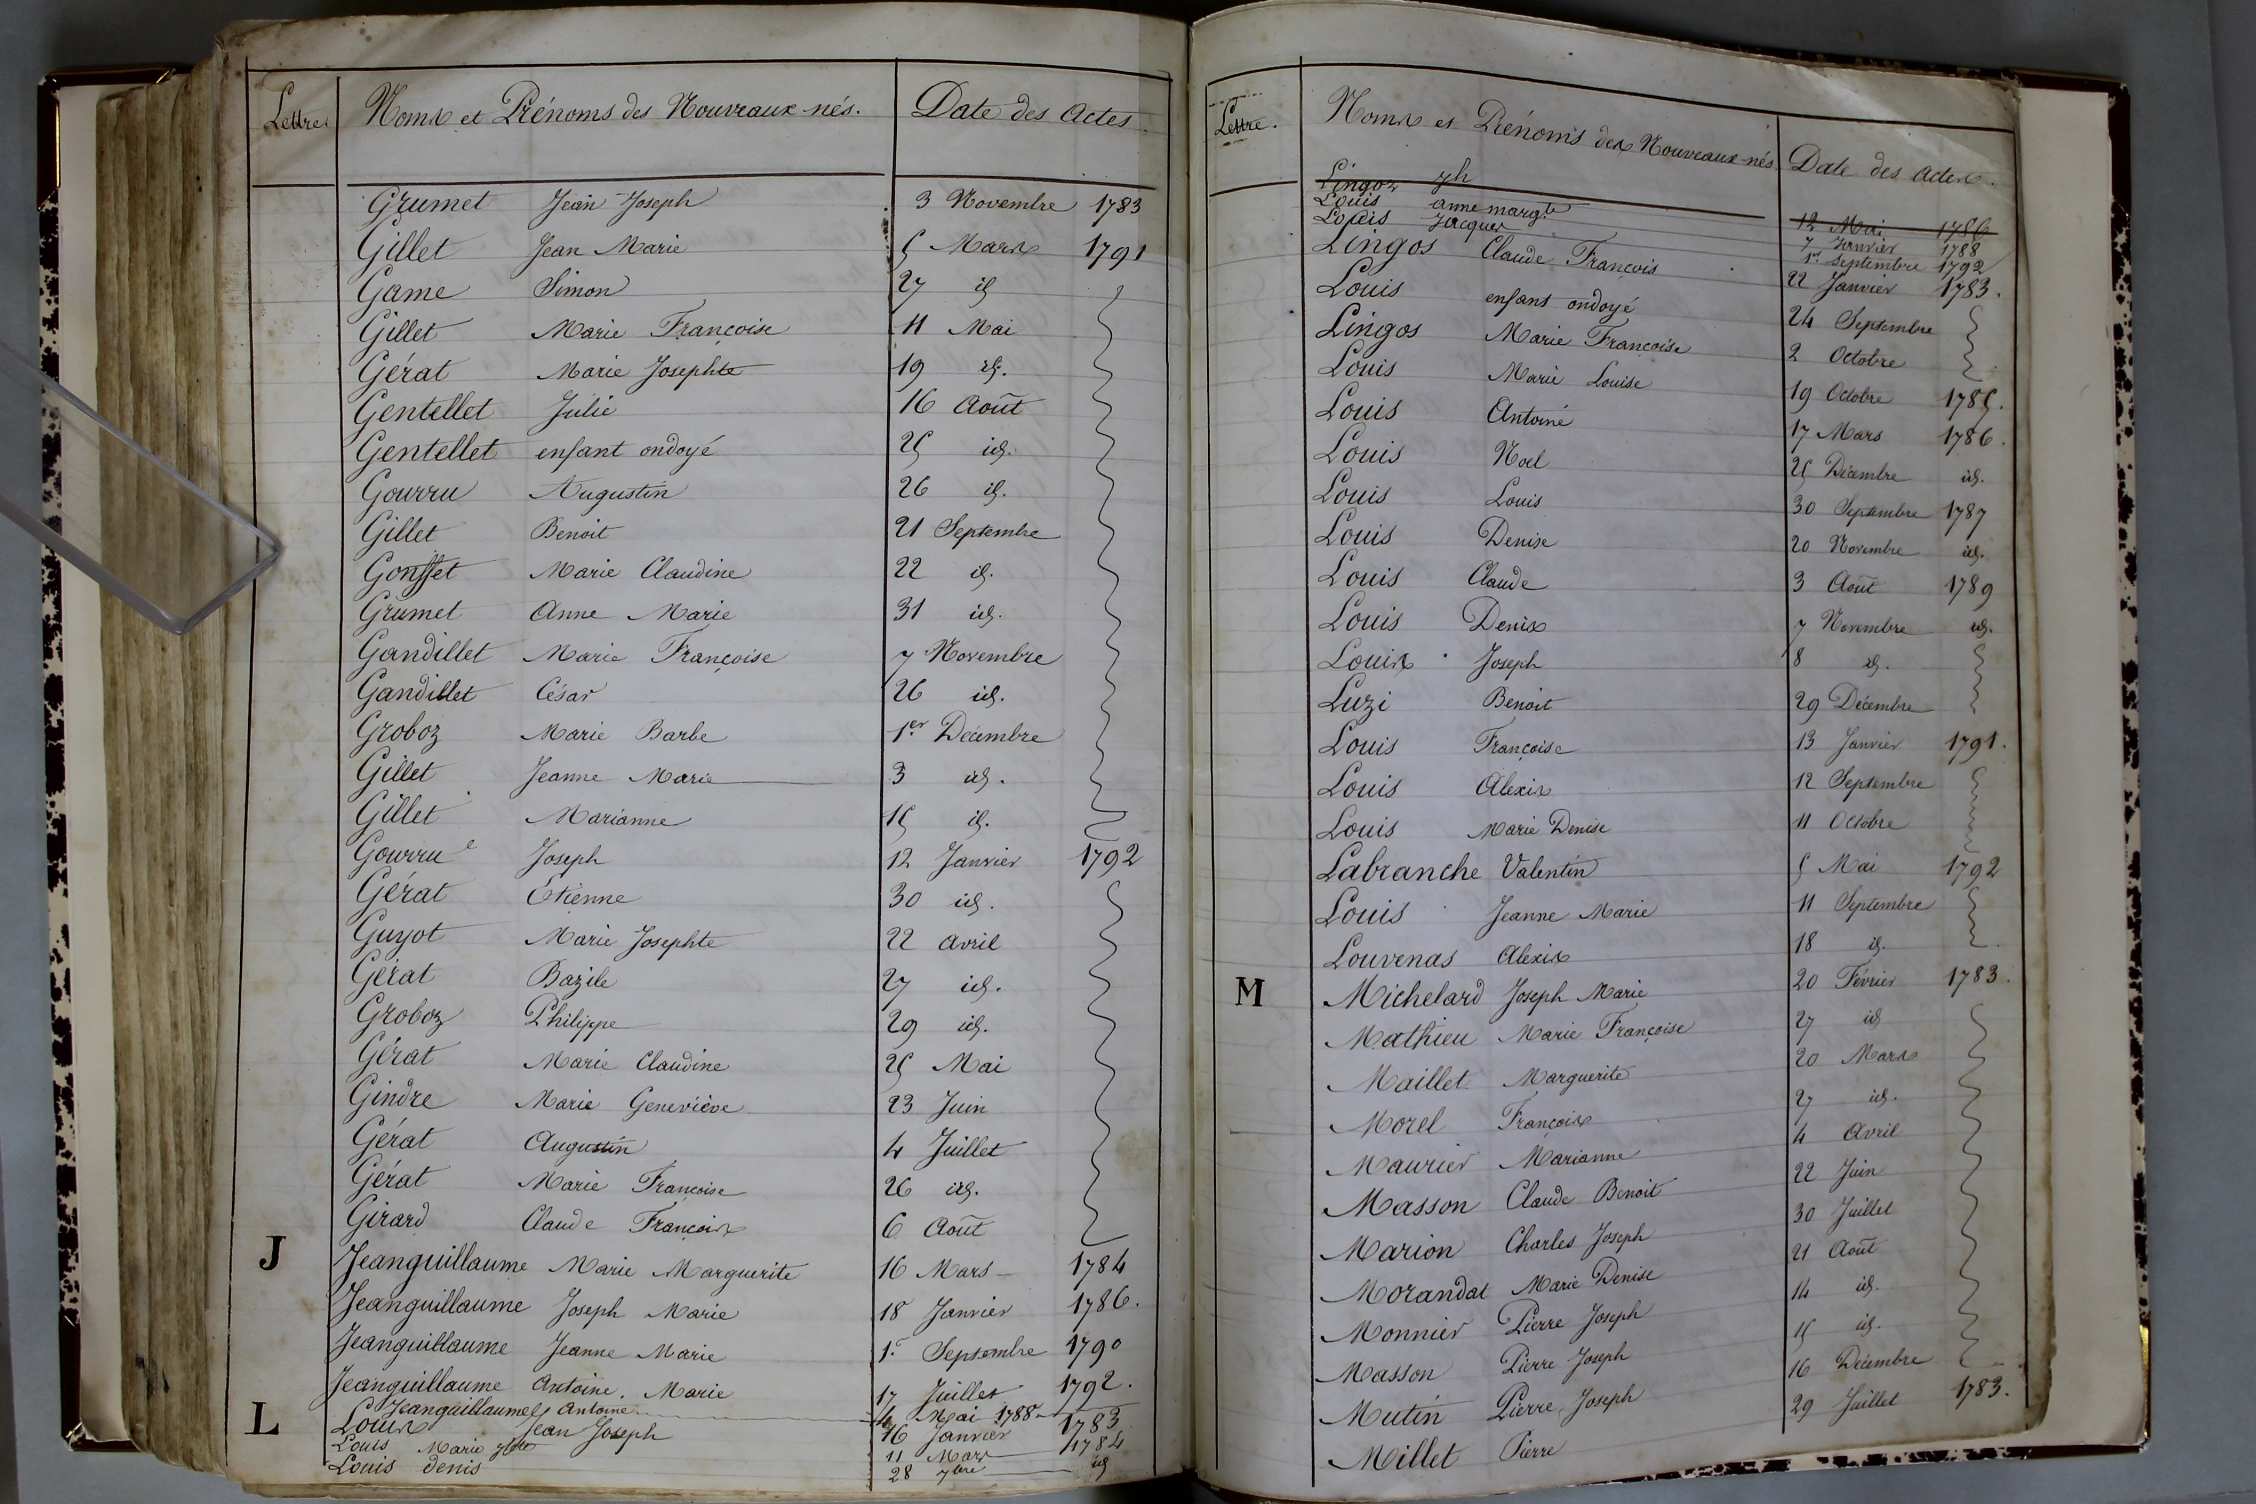 Lettres Noms et Prénoms des Nouveaux-nés. Date des Actes.
Grumet Jean-Joseph 3 Novembre 1783
Gillet Jean Marie 5 Mars 1791
Game Simon 27 id
Gillet Marie Françoise 11 Mai
Gérat Marie Josephte 19 id.
Gentellet Julie 16 Août
Gentellet enfant ondoyé 25 id.
Gourru Augustin 26 id.
Gillet Benoit 21 Septembre
Gonsset Marie Claudine 22 id.
Grumet Anne Marie 31 id.
Gandillet Marie Françoise 7 Novembre
Gandillet César 26 id.
Groboz Marie Barbe 1er Décembre
Gillet Jeanne Marie 3 id.
Gillet Marianne 15 id.
Gourru Joseph 12 Janvier 1792
Gérat Etienne 30 id.
Guyot Marie Josephte 22 Avril
Gérat Bazile 27 id.
Groboz Philippe 29 id.
Gérat Marie Claudine 25 Mai
Gindre Marie Geneviève 23 Juin
Gérat Augustin 4 Juillet
Gérat Marie Françoise 26 id.
Girard Claude François 6 Août
J Jeanguillaume Marie Marguerite 16 Mars 1784
Jeanguillaume Joseph Marie 18 Janvier 1786.
Jeanguillaume Jeanne Marie 1.er Septembre 1790
Jeanguillaume Antoine. Marie 17 Juillet 1792.
Jeanguillaume Antoine 4 Mai 1788
L Louis Jean Joseph 16 Janvier 1783
Louis Marie 11 Mars 1784
Louis denis 28 7bre id
Lettre. Noms et Prénoms des Nouveaux-nés Date des Actes.
Lingoz jh 12 Mai 1786
Louis anne margte 7 Janvier 1788
Louis Jacques 1er Septembre 1792
Lingos Claude François 22 Janvier 1783.
Louis enfant ondoyé 24 Septembre
Lingos Marie Françoise 2 Octobre
Louis Marie Louise 19 Octobre 1785.
Louis Antoine 17 Mars 1786.
Louis Noel 25 Décembre id.
Louis Louis 30 Septembre 1787
Louis Denise 20 Novembre id.
Louis Claude 3 Août 1789
Louis Denis 7 Novembre id.
Louis Joseph 8 id.
Luzi Benoit 29 Décembre
Louis Françoise 13 Janvier 1791.
Louis Alexis 12 Septembre
Louis Marie Denise 11 Octobre
Labranche Valentin 5 Mai 1792
Louis Jeanne Marie 11 Septembre
Louvenas Alexis 18 id.
M Michelard Joseph Marie 20 Février 1783.
Mathieu Marie Françoise 27 id
Maillet Marguerite 20 Mars
Morel François 27 id.
Maurier Marianne 4 Avril
Masson Claude Benoit 22 Juin
Marion Charles Joseph 30 Juillet
Morandat Marie Denise 21 Août
Monnier Pierre Joseph 14 id.
Masson Pierre Joseph 15 id.
Mutin Pierre Joseph 16 Décembre
Millet Pierre 29 Juillet 1783.